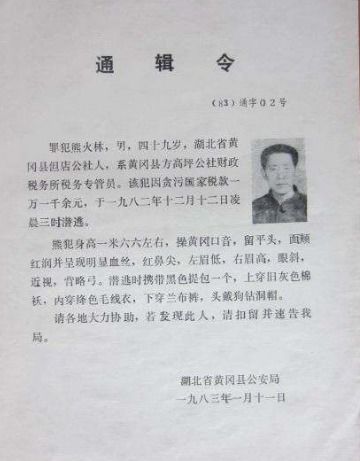 通辑令
（83）通字02号
罪犯熊火林，男，四十九岁，湖北省黄
冈县但店公社人，系黄冈县方高坪公社财政
税务所税务专管员。该犯因贪污国家税款一
万一千余元，于一九八二年十二月十二日凌
晨三时潜逃。
熊犯身高一米六六左右，操黄冈口音，留平头，面颊
红润并呈现明显血丝，红鼻尖，左眉低，右眉高，眼斜，
近视，背略弓。潜逃时携带黑色提包一个，上穿旧灰色棉
袄，内穿绛色毛线衣，下穿兰布裤，头戴狗钻洞帽。
请各地大力协助，若发现此人，请扣留并速告我
局。
湖北省黄冈县公安局
一九八三年一月十一日